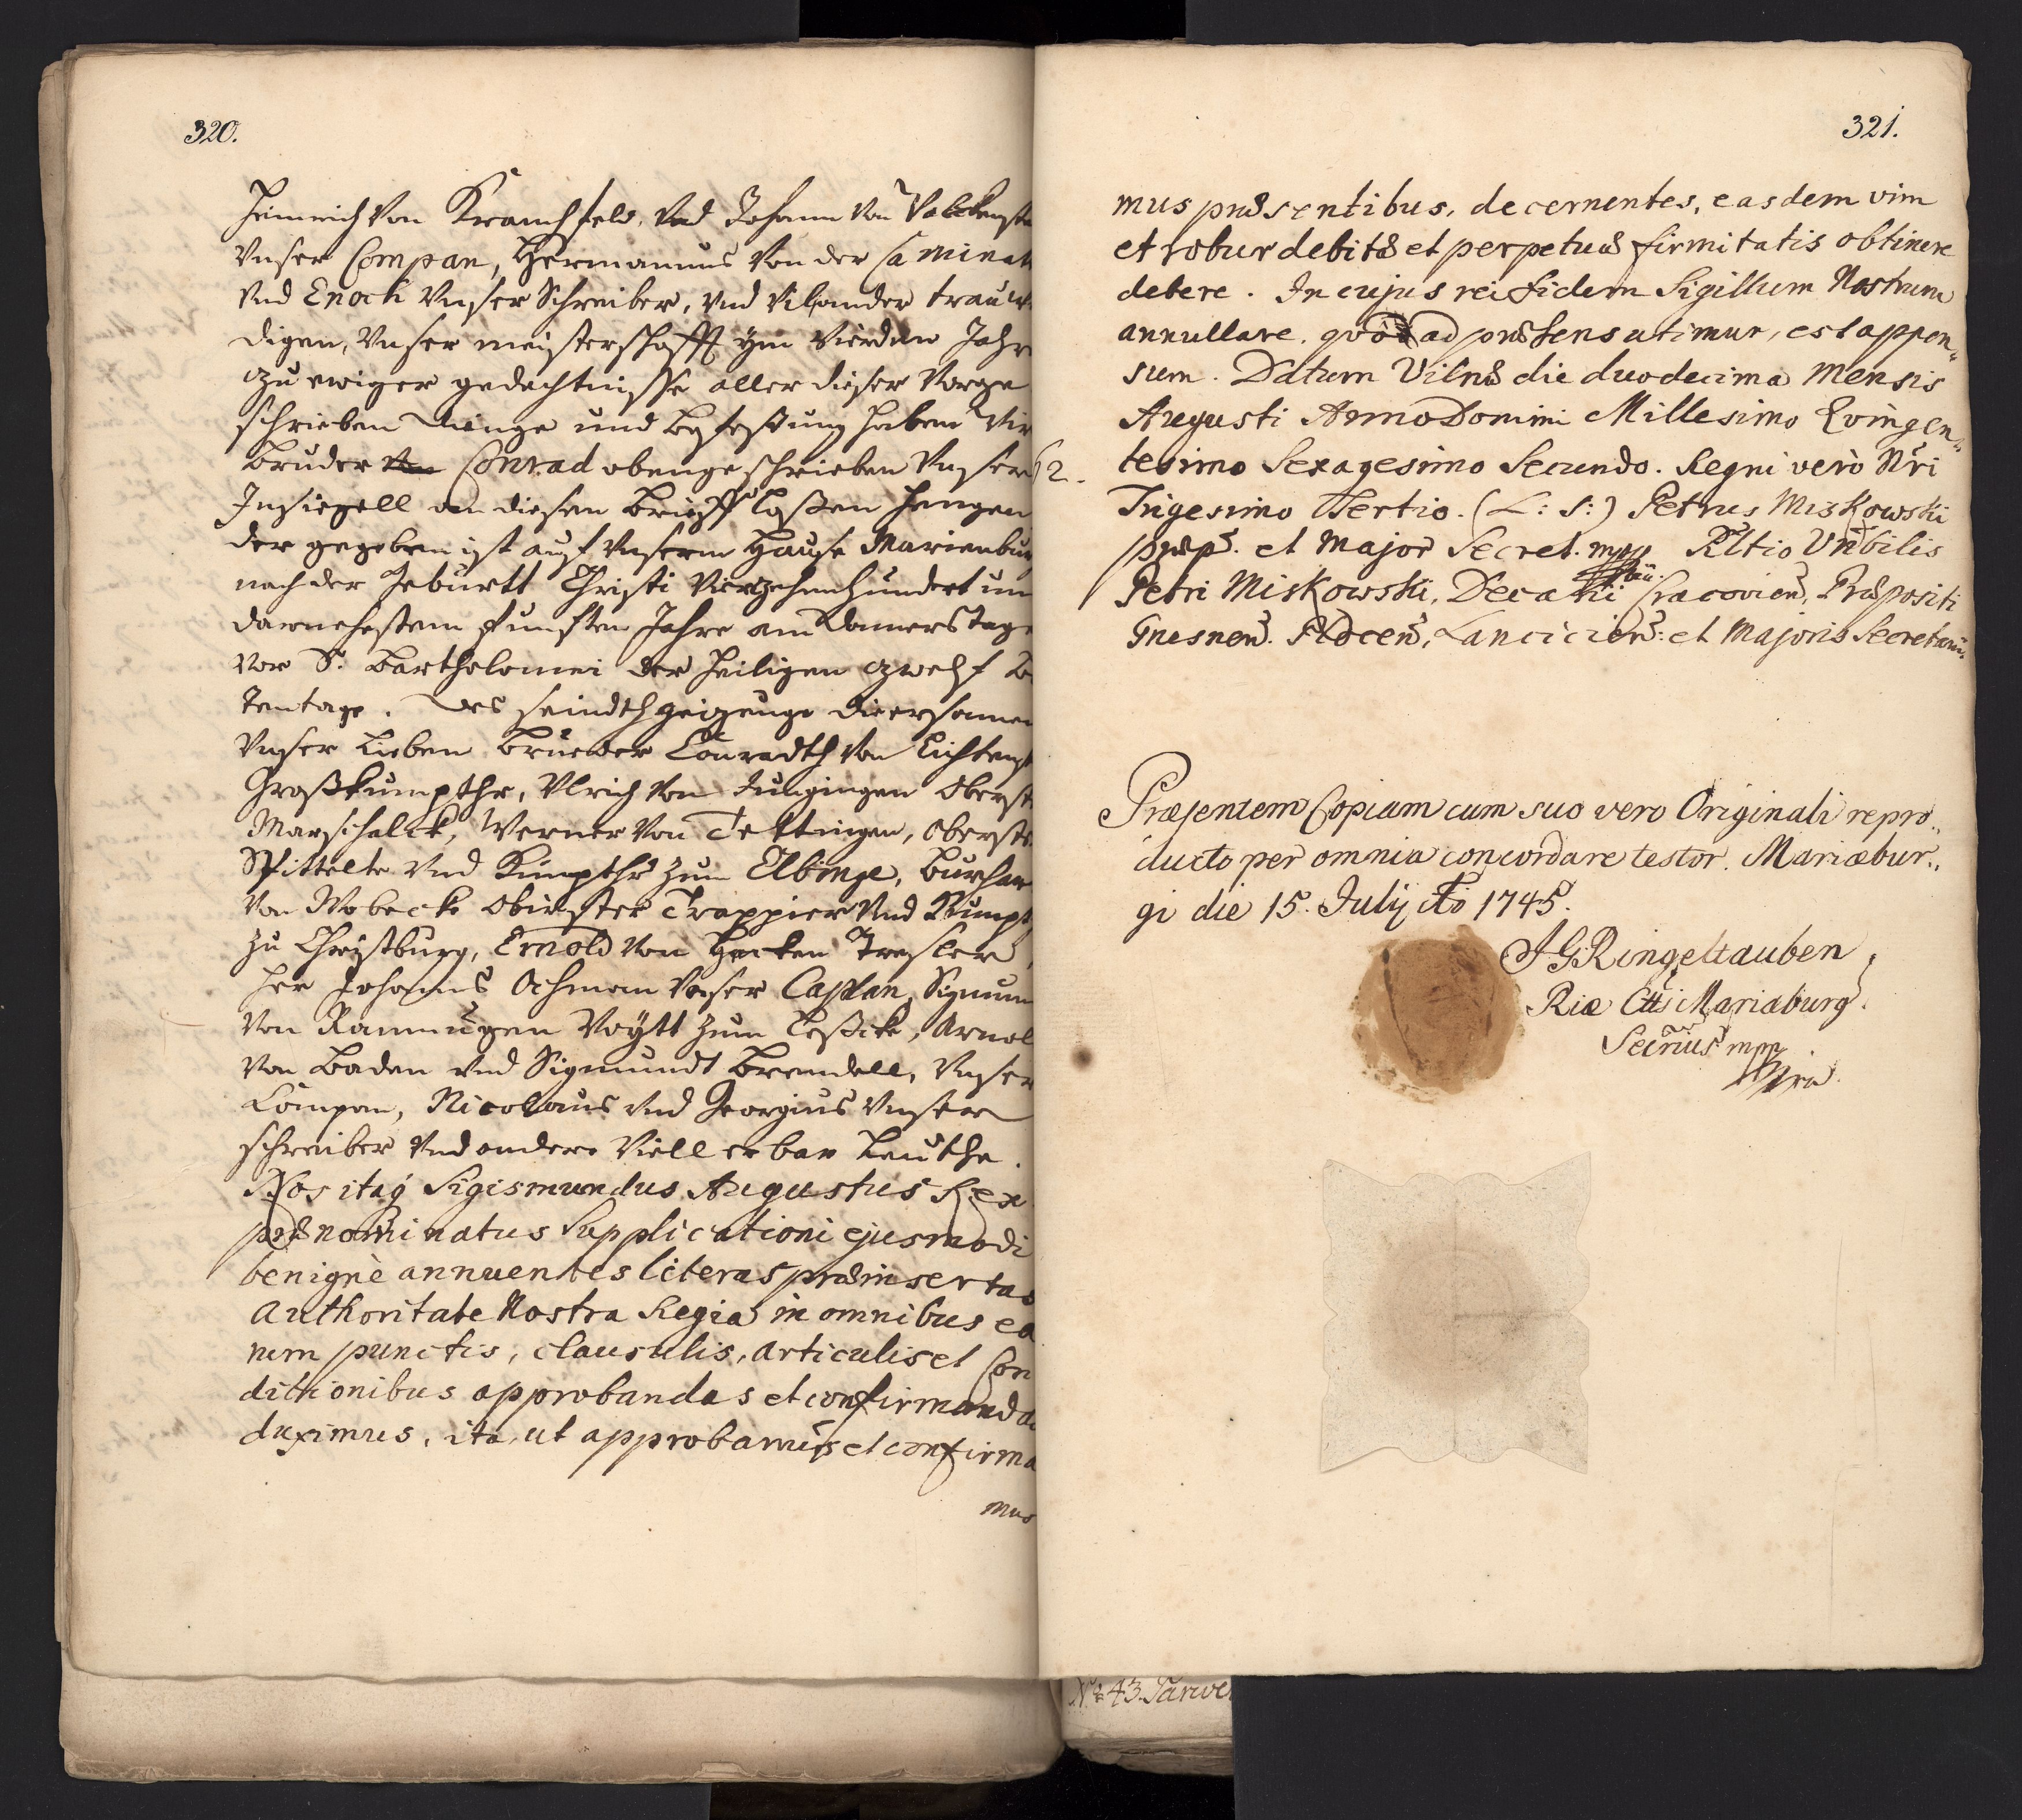 320.
Heinrich Von Kranichfeld, Vnd Johann Von
Vnser Compan, Hermannus Von der
Vnd Enoch Vnser Schreiber, Vnd Vil ander trauw
digen, Vnser meisterschafft ym Vierden Jahr
zu ewiger gedechtnisse aller dieser Vorge
schrieben Dinge und befestung haben Wir
Bruder Conrad obengeschrieben Vnser
Insiegell an diesen brieff laßen hengen
der gegeben ist auf Vnserm Hause Marienbur
nach der Geburtt Christi Viertzehenhundert un
darnehestem funften Jahre am Donnerstage
vor S. Bartholomei der heiligen zwelf Bo
tentage. Des seindth gezeuge die ersamen
Vnser Lieben Brueder Conradth Von Lichtenst
Großkumpthr, Vlrich Von Jungingen Oberst
Marschalck, Werner Von Tettingen, Oberst
Spittelr Vnd Kumpthr zum Elbinge, Burhar
Von Wobecke Obirster Trappier Vnd Kumpt
zu Christburg, Ernold Von Hecken Tresler,
Her Johannes Ochman Vnser Caplan, Sigmun
Von Rammugen Voytt zum Leßcke, Arnol
Von Baden Vnd Sigmundt Brendell, Vnser
Compan, Nicolaus Vnd Georgius Vnser
schreiber Vnd andere Viell erbar Leuthe.
Nos itaq Sigismundus Augustus Rex
prænominatus Supplicationi ejusmodi
benignè annuentes literas præinsertas
Authoritate Nostra Regia in omnibus ea
rum punctis, clausulis, articulis et Con
ditionibus approbandas et confirmanda
duximus, ita, ut approbamus et confirma
mus
321.
mus præsentibus, decernentes, easdem vim
et robur debitæ et perpetuæ firmitatis obtinere
debere. In cujus rei fidem Sigillum Nostrum
annullare. qvô ad præsens utimur, est appen„
sum. Datum Vilnæ die duodecima Mensis
Augusti Anno Domini Millesimo Qvingen„
62. tesimo Sexagesimo Secundo. Regni verò Nri
Trigesimo Tertio. (L: S:) Petrus Miskowski
præp. et Major Secret. mpp Rltio Vnbilis
Petri Miskowski, Decani Cracovien, Præpositi
Gnesnen. Plocen, Lancicien: et Majoris Secretarii.
Præsentem Copiam cum suo vero Originali repro„
ducto per omnia concordare testor. Mariæbur„
gi die 15. July Ao 1745.
J G Ringeltauben
Riæ Cttis Mariæburg.
Secrius mpp
№ 43.